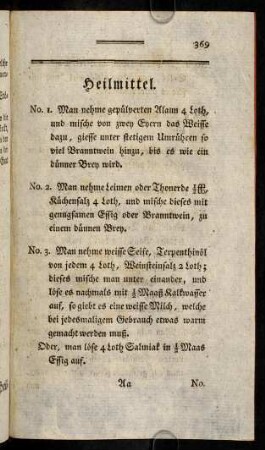 369
Heilmittel.
No. 1. Man nehme gepülverten Alaun 4 Loth,
und mische von zwey Eyern das Weisse
dazu, giesse unter stetigem Umrühren so
viel Branntwein hinzu, bis es wie ein
dünner Brey wird.
No. 2. Man nehme Leimen oder Thonerde
Küchensalz 4 Loth, und mische dieses mit
genugsamen Essig oder Branntwein, zu
einem dünnen Brey.
No. 3. Man nehme weisse Seife, Terpenthinöl
von jedem 4 Loth, Weinsteinsalz 2 Loth;
dieses mische man unter einander, und
löse es nachmals mit ½ Maaß Kalkwasser
auf, so giebt es eine weisse Milch, welche
bei jedesmaligem Gebrauch etwas warm
gemacht werden muß.
Oder, man löse 4 Loth Salmiak in ½ Maas
Essig auf.
Aa No.